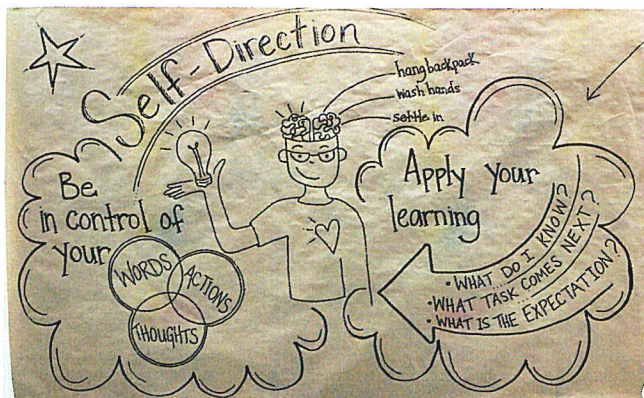 Self-Direction
hang backpack
wash hands
settle in
Be
in control of
your
WORDS
ACTIONS
THOUGHTS
Apply your
learning
• WHAT DO I KNOW?
• WHAT TASK COMES NEXT?
• WHAT IS THE EXPECTATION?